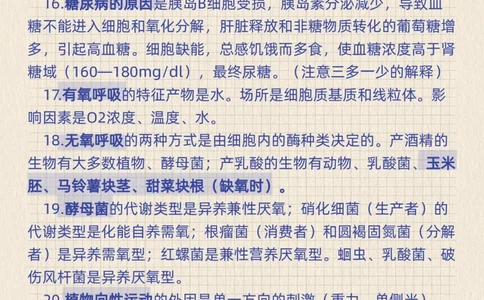 16.糖尿病的原因是胰岛B细胞受损，胰岛素分泌减少，导致血
糖不能进入细胞和氧化分解，肝脏释放和非糖物质转化的葡萄糖增
多，引起高血糖。细胞缺能，总感饥饿而多食，使血糖浓度高于肾
糖域（160—180mg/dl），最终尿糖。（注意三多一少的解释）
17.有氧呼吸的特征产物是水。场所是细胞质基质和线粒体。影
响因素是O2浓度、温度、水。
18.无氧呼吸的两种方式是由细胞内的酶种类决定的。产酒精的
生物有大多数植物、酵母菌；产乳酸的生物有动物、乳酸菌、玉米
胚、马铃薯块茎、甜菜块根（缺氧时）。
19.酵母菌的代谢类型是异养兼性厌氧；硝化细菌（生产者）的
代谢类型是化能自养需氧；根瘤菌（消费者）和圆褐固氮菌（分解
者）是异养需氧型；红螺菌是兼性营养厌氧型。蛔虫、乳酸菌、破
伤风杆菌是异养厌氧型。
20.植物向性运动的外因是单一方向的刺激（重力、单侧光）